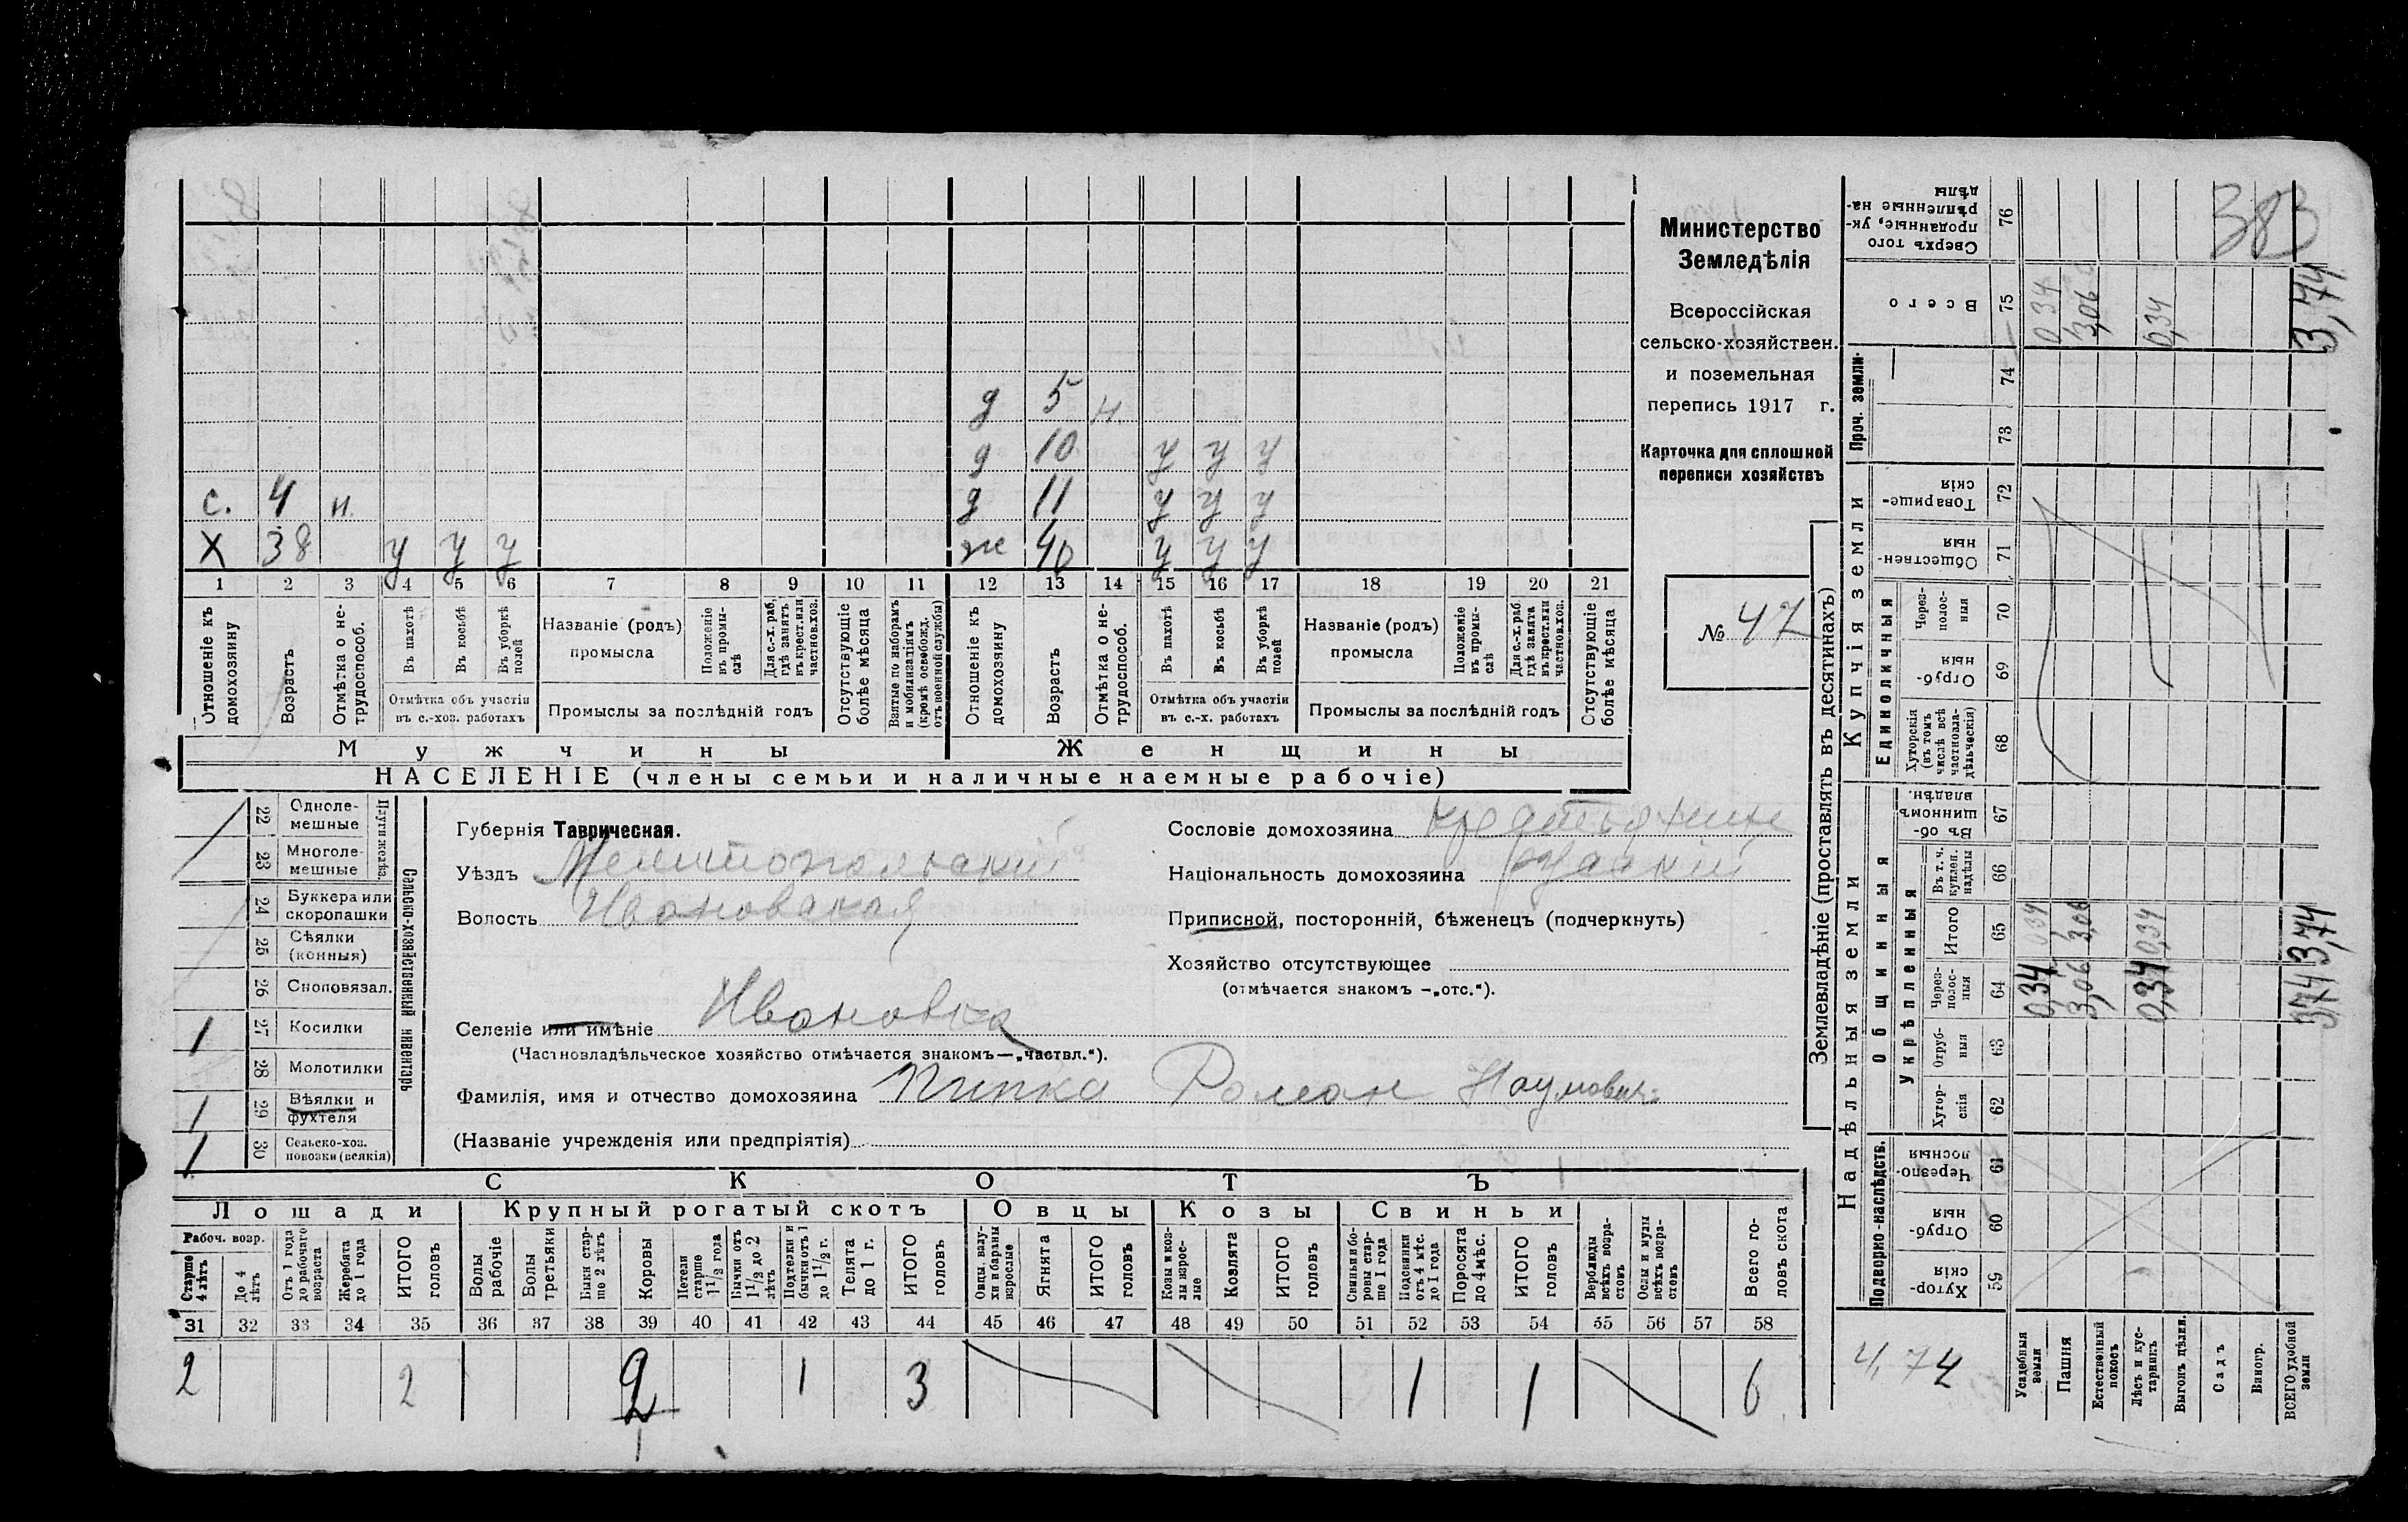 Министерство
Земледѣлія
Всероссійская
сельско-хозяйствен.
и поземельная
перепись 1917 г.
Карточка для сплошной
переписи хозяйствъ
№ 47
383
д 5 н.
д 10 у у у
с. 4 н. д 11 у у у
Х 38 у у у ж 40 у у у
1 2 3 4 5 6 7 8 9 10 11 12 13 14 15 16 17 18 19 20 21
Отношеніе къ домохозяину
Возрастъ
Отмѣтка о не-трудоспособ.
Въ пахотѣ
Въ косьбѣ
Въ уборкѣ полей
Отмѣтка объ участіи
въ с.-хоз. работахъ
Названіе (родъ)
промысла
Положеніе въ промы-слѣ
Для с.-х. раб. гдѣ занятъ въ крест. или частнов. хоз.
Промыслы за послѣдній годъ
Отсутствующіе болѣе мѣсяца
Взятые по наборамъ и мобилизаціямъ (кромѣ освобожд. отъ военной службы)
Отношеніе къ домохозяину
Возрастъ
Отмѣтка о не-трудоспособ.
Въ пахотѣ
Въ косьбѣ
Въ уборкѣ полей
Отмѣтка объ участіи
въ с.-х. работахъ
Названіе (родъ)
промысла
Положеніе въ промы-слѣ
Для с.-х. раб. гдѣ занята въ крест. или частнов. хоз.
Промыслы за послѣдній годъ
Отсутствующіе болѣе мѣсяца
Мужчины Женщины
НАСЕЛЕНІЕ (члены семьи и наличные наемные рабочіе)
Сельско-хозяйственный инвентарь
22 Одноле-мешные
23 Многоле-мешные
24 Буккера или скоропашки
25 Сѣялки (конныя)
26 Сноповязал.
1 27 Косилки
28 Молотилки
1 29 Вѣялки и фухтеля
1 30 Сельско-хоз. повозки (всякія)
Губернія Таврическая.
Уѣздъ Мелитопольскій
Волость Ивановская
Селеніе или имѣніе Ивановка
(Частновладѣльческое хозяйство отмѣчается знакомъ—„частвл.“).
Фамилія, имя и отчество домохозяина Пипка Роман Наумович
(Названіе учрежденія или предпріятія)
Сословіе домохозяина крестьянин
Національность домохозяина русскій
Приписной, посторонній, бѣженецъ (подчеркнуть)
Хозяйство отсутствующее
(отмѣчается знакомъ —„отс.“).
СКОТЪ
Лошади Крупный рогатый скотъ Овцы Козы Свиньи
Рабоч. возр.
Старше 4 лѣтъ
До 4 лѣтъ
Отъ 1 года до рабочаго возраста
Жеребята до 1 года
ИТОГО головъ
Волы рабочіе
Волы третьяки
Быки стар-ше 2 лѣтъ
Коровы
Нетели старше 1½ года
Бычки отъ 1½ до 2 лѣтъ
Подтелки и бычки отъ 1 до 1½ г.
Телята до 1 г.
ИТОГО головъ
Овцы, валу-хи и бараны взрослые
Ягнята
ИТОГО головъ
Козы и коз-лы взрос-лые
Козлята
ИТОГО головъ
Свиньи и бо-ровы стар-ше 1 года
Подсвинки отъ 4 мѣс. до 1 года
Поросята до 4 мѣс.
ИТОГО головъ
Верблюды всѣхъ возра-стовъ
Ослы и мулы всѣхъ возра-стовъ
Всего го-ловъ скота
31 32 33 34 35 36 37 38 39 40 41 42 43 44 45 46 47 48 49 50 51 52 53 54 55 56 57 58
2 2 2 1 3 1 1 6
Землевладѣніе (проставлять въ десятинахъ)
Надѣльныя земли Купчія земли Проч. земли
Подворно-наслѣдств.
Общинныя
Укрѣпленныя
Единоличныя
Хутор-скія 59
Отруб-ныя 60
Черезпо-лосныя 61
Хутор-скія 62
Отруб-ныя 63
Через-полос-ныя 64
Итого 65
Въ т. ч. куплен. надѣлы 66
Въ об-щинномъ владѣн. 67
Хуторскія (въ томъ числѣ всѣ частновла-дѣльческія) 68
Отруб-ныя 69
Через-полос-ныя 70
Обществен-ныя 71
Товарище-скія 72
73
74
Всего 75
Сверхъ того проданные, ук-рѣпленные на-дѣлы 76
Усадебныя земли 0,34 0,34 0,34
Пашня 3,06 3,06 3,06
Естественный покосъ
Лѣсъ и кус-тарникъ 0,34 0,34 0,34
Выгонъ цѣлин.
Садъ
Виногр.
ВСЕГО удобной земли 3,74 3,74 3,74
4,74